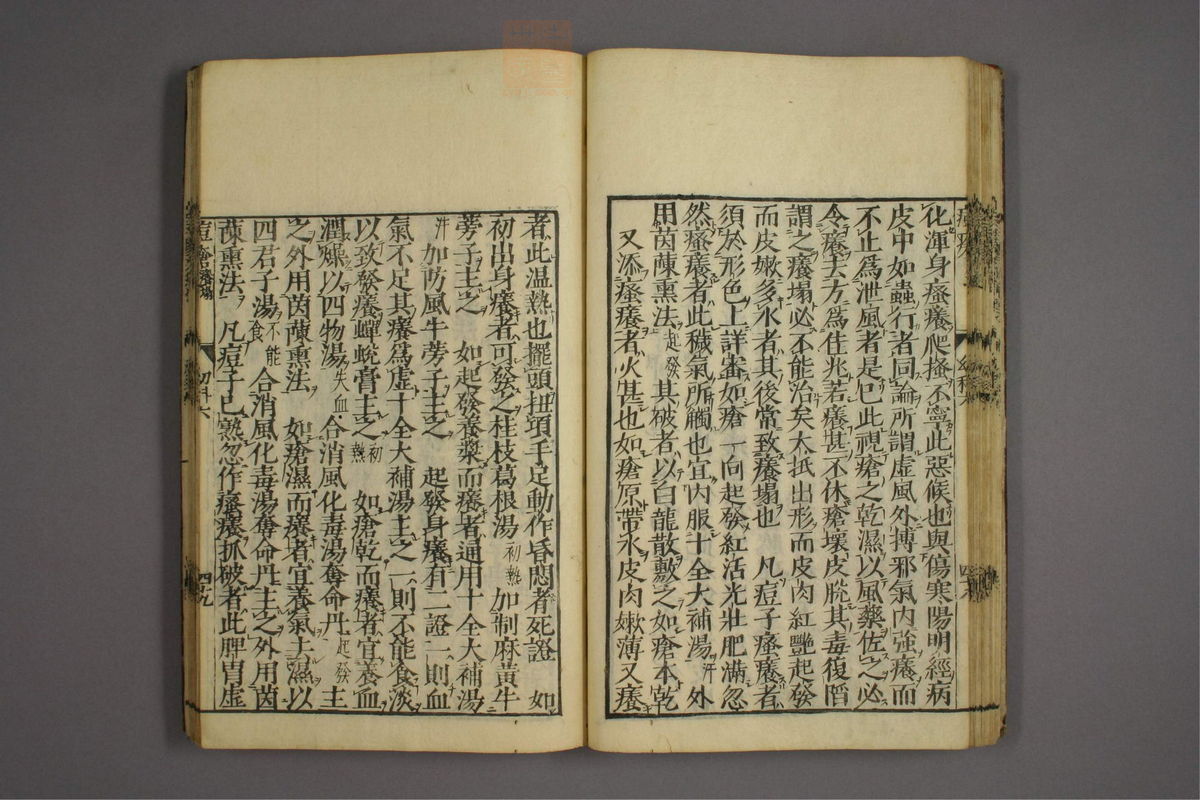 化渾身瘙癢爬搔不寧此惡候也與傷寒陽明經病
皮中如蟲行者同論所謂虛風外搏邪氣內強癢而
不止爲泄風者是巳此視瘡之乾濕以風藥佐之必
令癢去方爲佳兆若癢甚不休瘡壞皮脫其毒復陷
謂之癢塌必不能治矣太抵出形而皮肉紅艷起發
而皮嫩多水者其後常致癢塌也 凡痘子瘙癢者
須於形色上詳審如瘡一向起發紅活光壯肥滿忽
然瘙癢者此穢氣所觸也宜內服十全大補湯汗外
用茵蔯熏法起發其破者以白龍散敷之如瘡本乾
又添瘙癢者火甚也如瘡原帶水皮肉嫩薄又癢
者此温熱也擺頭扭項手足動作昏悶者死證 如
初出身癢者可發之桂枝葛根湯初熱加制麻黃牛
蒡子主之 如起發養漿而癢者通用十全大補湯
汗加防風牛蒡子主之 起發身癢有二證一則血
氣不足其癢爲虛十全大補湯主之一則不能食淡
以致發癢蟬蛻膏主之初熱 如瘡乾而癢者宜養血
潤燥以四物湯失血合消風化毒湯奪命丹起發主
之外用茵蔯熏法 如瘡濕而癢者宜養氣去濕以
四君子湯不能食合消風化毒湯奪命丹主之外用茵
蔯熏法 凡痘子已熟忽作瘙癢抓破者此脾胃虛
痘瘡癢塌 幼科六 四十九